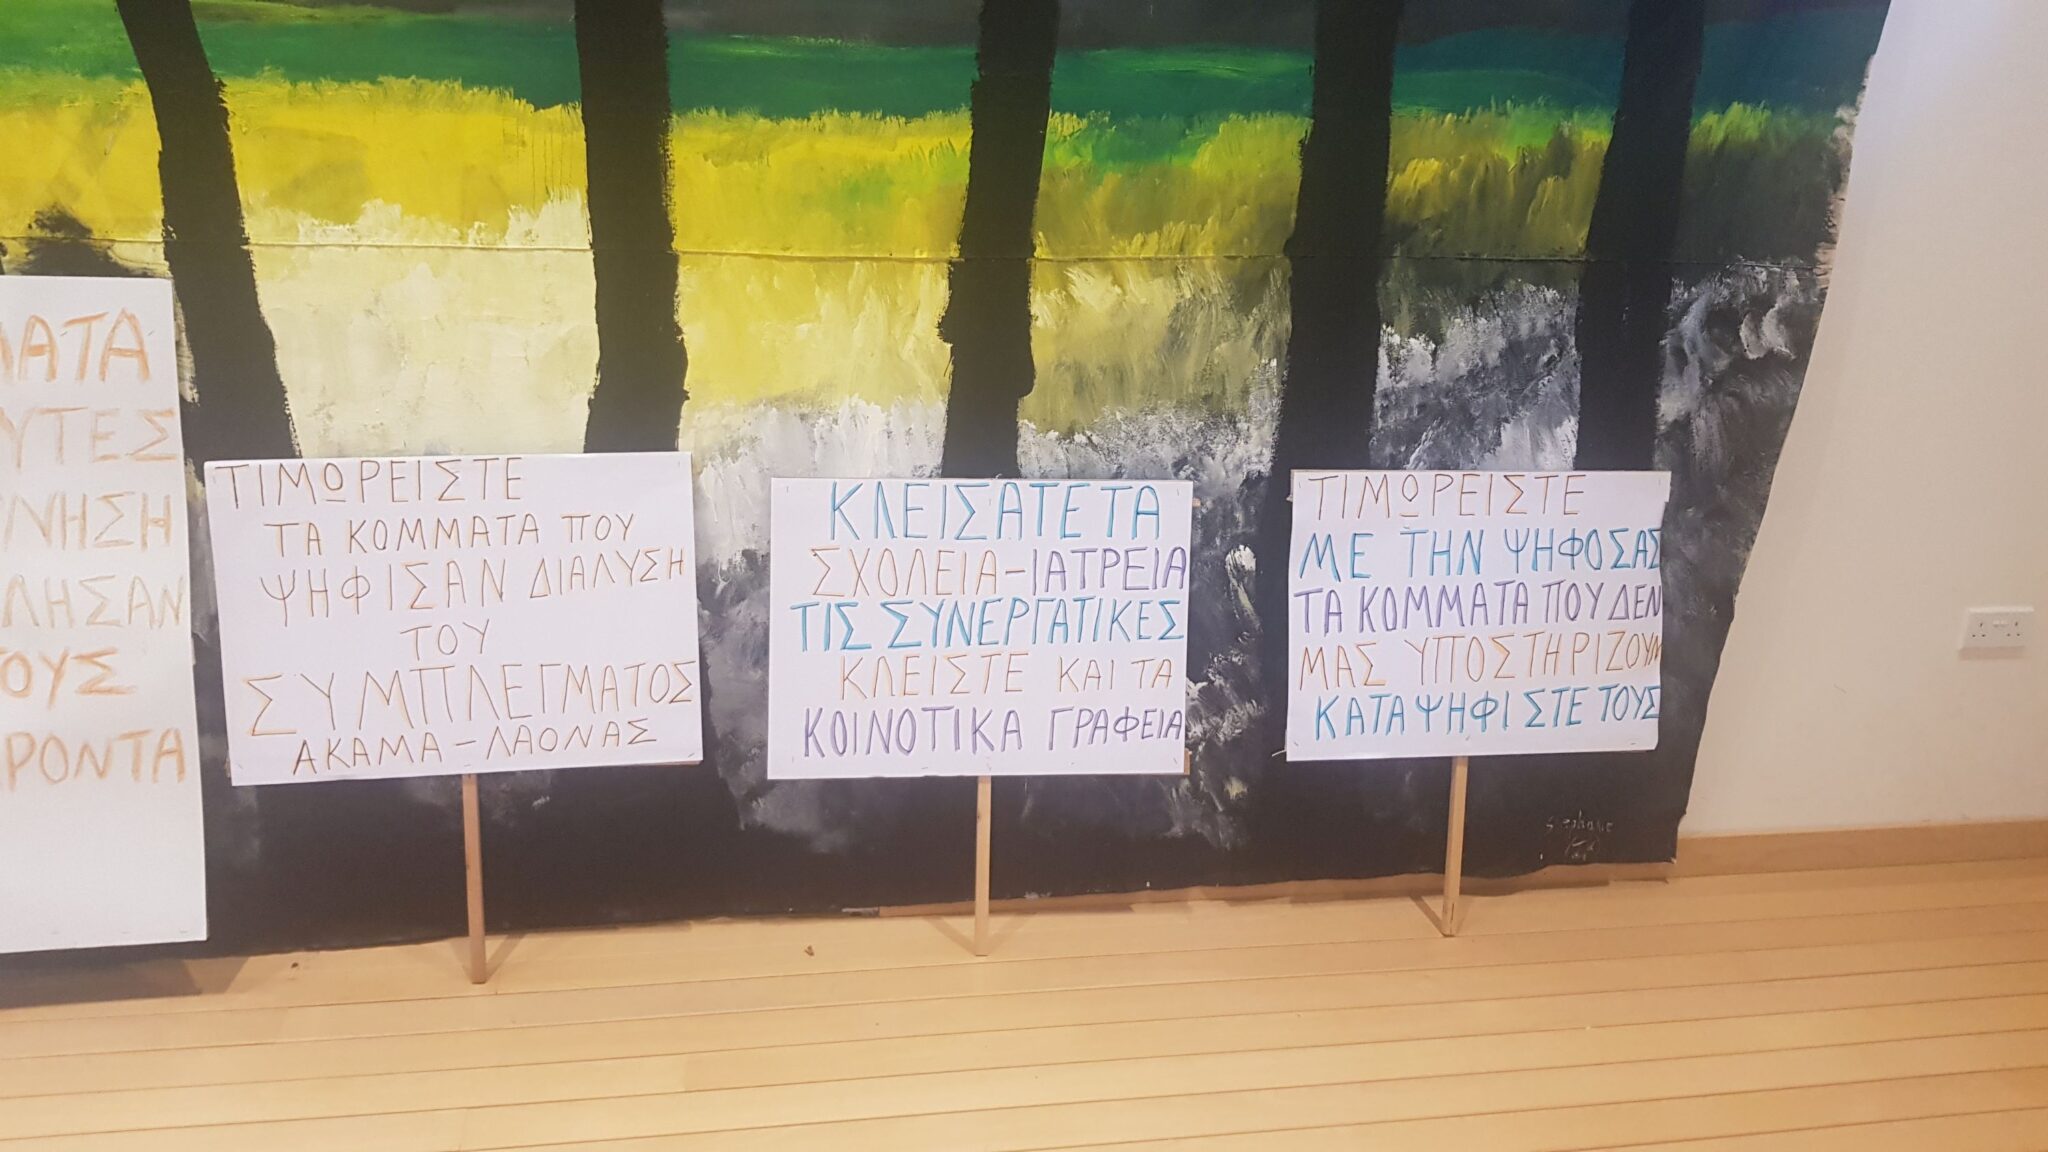 ΤΑ
ΥΤΕΣ
ΝΗΣΗ
ΛΗΣΑΝ
ΟΥΣ
ΡΟΝΤΑ
ΤΙΜΩΡΕΙΣΤΕ
ΤΑ ΚΟΜΜΑΤΑ ΠΟΥ
ΨΗΦΙΣΑΝ ΔΙΑΛΥΣΗ
ΤΟΥ
ΣΥΜΠΛΕΓΜΑΤΟΣ
ΑΚΑΜΑ - ΛΑΟΝΑΣ
ΚΛΕΙΣΑΤΕ ΤΑ
ΣΧΟΛΕΙΑ - ΙΑΤΡΕΙΑ
ΤΙΣ ΣΥΝΕΡΓΑΤΙΚΕΣ
ΚΛΕΙΣΤΕ ΚΑΙ ΤΑ
ΚΟΙΝΟΤΙΚΑ ΓΡΑΦΕΙΑ
ΤΙΜΩΡΕΙΣΤΕ
ΜΕ ΤΗΝ ΨΗΦΟ ΣΑΣ
ΤΑ ΚΟΜΜΑΤΑ ΠΟΥ ΔΕΝ
ΜΑΣ ΥΠΟΣΤΗΡΙΖΟΥΝ
ΚΑΤΑΨΗΦΙΣΤΕ ΤΟΥΣ